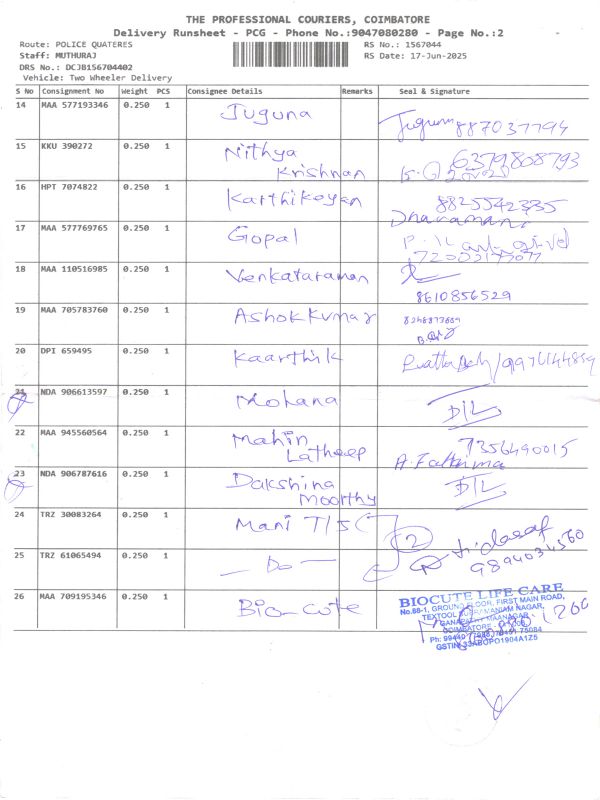 THE PROFESSIONAL COURIERS, COIMBATORE
Delivery Runsheet - PCG - Phone No.:9047080280 - Page No.:2
Route: POLICE QUATERES
RS No.: 1567044
Staff: MUTHURAJ
RS Date: 17-Jun-2025
DRS No.: DCJB156704402
Vehicle: Two Wheeler Delivery
S No Consignment No Weight PCS Consignee Details Remarks Seal & Signature
14 MAA 577193346 0.250 1 Juguna Juguna 887037794
15 KKU 390272 0.250 1 Nithya Krishnan 6379808793
16 HPT 7074822 0.250 1 Karthikeyan 8825542335
Dhanamani
17 MAA 577769765 0.250 1 Gopal
18 MAA 110516985 0.250 1 Venkataraman
8610856529
19 MAA 705783760 0.250 1 Ashok Kumar
20 DPI 659495 0.250 1 Kaarthik
21 NDA 906613597 0.250 1 Mohana D/L
22 MAA 945560564 0.250 1 Mahin Latheep 7356490015
A. Fathima
23 NDA 906787616 0.250 1 Dakshina Moorthy D/L
24 TRZ 30083264 0.250 1 Mani T/S 2
25 TRZ 61065494 0.250 1 — Do — 9894034560
26 MAA 709195346 0.250 1 Bio-cute
BIOCUTE LIFE CARE
No.88-1, GROUND FLOOR, FIRST MAIN ROAD,
TEXTOOL SUBRAMANIAM NAGAR,
GANAPATHY MAANAGAR
COIMBATORE
GSTIN